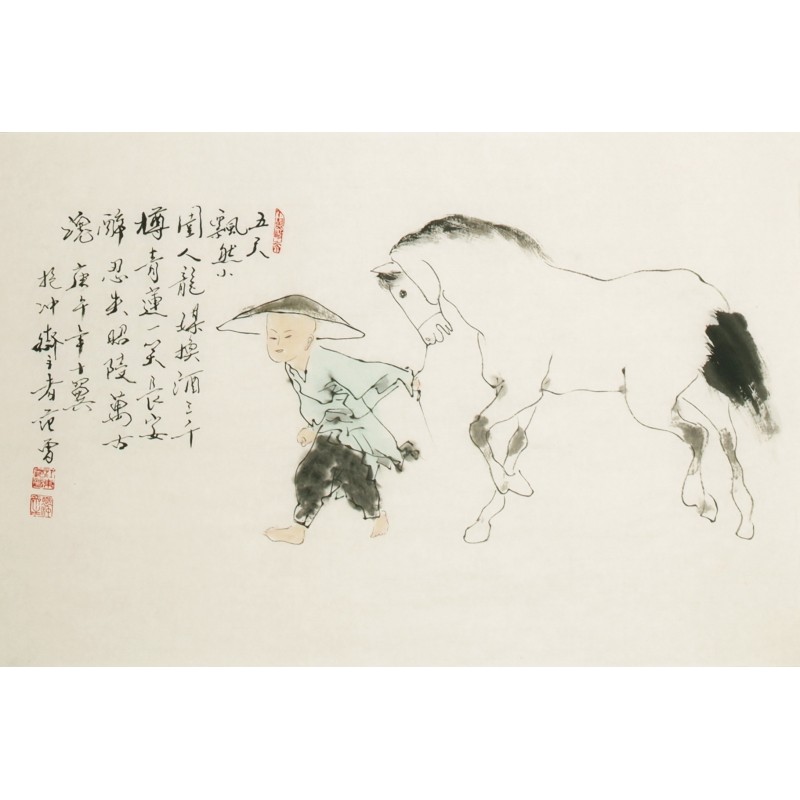 五尺
飄然小
圉人龍媒換酒三千
樽青蓮一笑長安
醉忍失昭陵萬古
魂 庚午年十翼
抱冲齋主者范曾